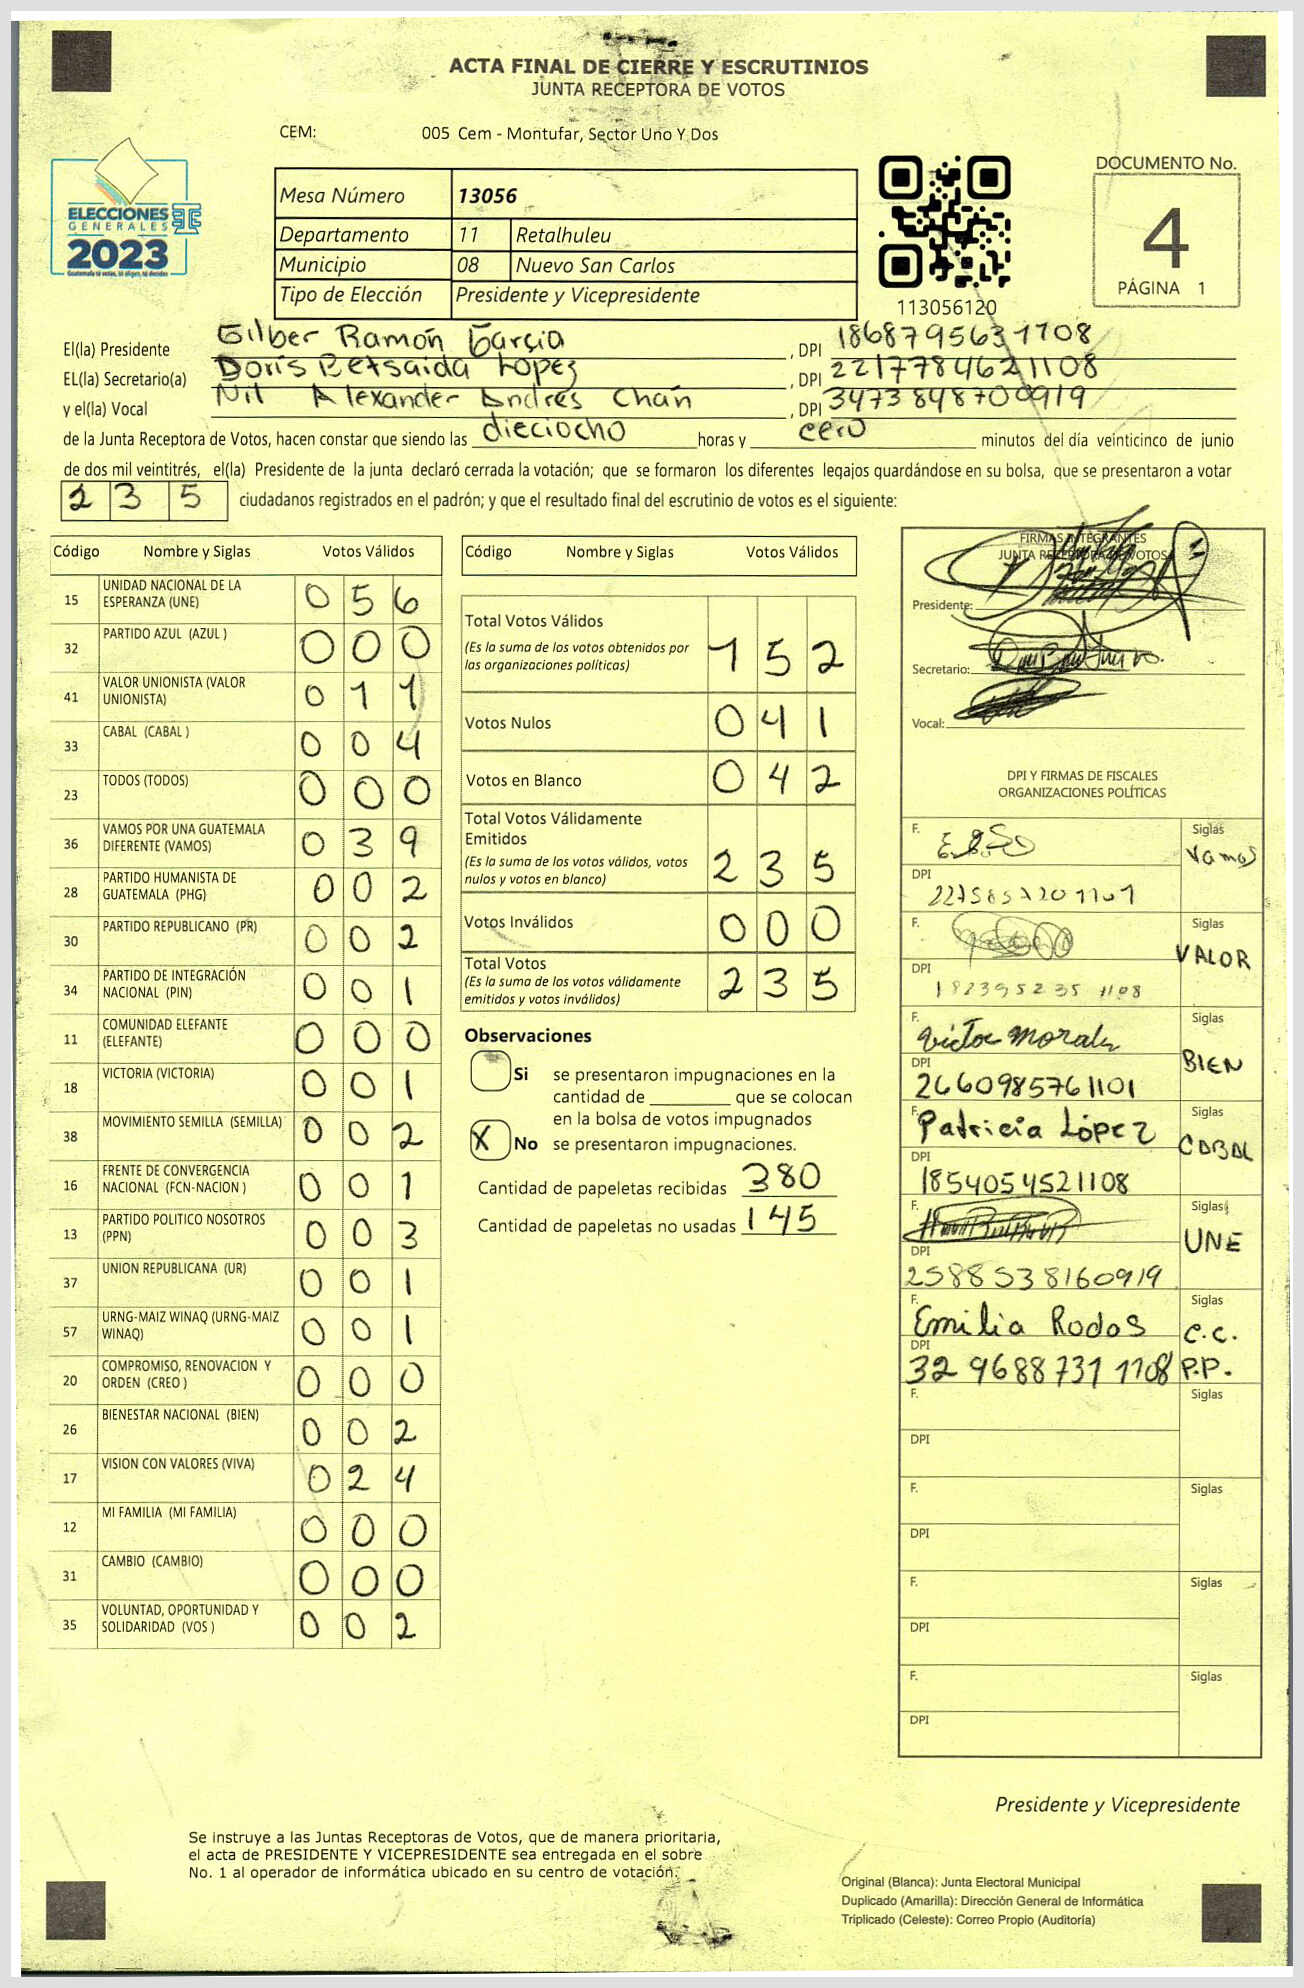 ACTA FINAL DE CIERRE Y ESCRUTINIOS
JUNTA RECEPTORA DE VOTOS
CEM: 005 Cem - Montufar, Sector Uno Y Dos
ELECCIONES
GENERALES
2023
Guatemala tú votas, tú eliges, tú decides
Mesa Número 13056
Departamento 11 Retalhuleu
Municipio 08 Nuevo San Carlos
Tipo de Elección Presidente y Vicepresidente
113056120
DOCUMENTO No.
4
PÁGINA 1
El(la) Presidente Gilber Ramón García, DPI 1868795631108
EL(la) Secretario(a) Doris Betsaida Lopez, DPI 2217784621108
y el(la) Vocal Nit Alexander Andres Chán, DPI 3473848700919
de la Junta Receptora de Votos, hacen constar que siendo las dieciocho horas y cero minutos del día veinticinco de junio
de dos mil veintitrés, el(la) Presidente de la junta declaró cerrada la votación; que se formaron los diferentes legajos guardándose en su bolsa, que se presentaron a votar
2 3 5 ciudadanos registrados en el padrón; y que el resultado final del escrutinio de votos es el siguiente:
Código Nombre y Siglas Votos Válidos
15 UNIDAD NACIONAL DE LA ESPERANZA (UNE) 0 5 6
32 PARTIDO AZUL (AZUL ) 0 0 0
41 VALOR UNIONISTA (VALOR UNIONISTA) 0 1 1
33 CABAL (CABAL ) 0 0 4
23 TODOS (TODOS) 0 0 0
36 VAMOS POR UNA GUATEMALA DIFERENTE (VAMOS) 0 3 9
28 PARTIDO HUMANISTA DE GUATEMALA (PHG) 0 0 2
30 PARTIDO REPUBLICANO (PR) 0 0 2
34 PARTIDO DE INTEGRACIÓN NACIONAL (PIN) 0 0 1
11 COMUNIDAD ELEFANTE (ELEFANTE) 0 0 0
18 VICTORIA (VICTORIA) 0 0 1
38 MOVIMIENTO SEMILLA (SEMILLA) 0 0 2
16 FRENTE DE CONVERGENCIA NACIONAL (FCN-NACION ) 0 0 1
13 PARTIDO POLITICO NOSOTROS (PPN) 0 0 3
37 UNION REPUBLICANA (UR) 0 0 1
57 URNG-MAIZ WINAQ (URNG-MAIZ WINAQ) 0 0 1
20 COMPROMISO, RENOVACION Y ORDEN (CREO ) 0 0 0
26 BIENESTAR NACIONAL (BIEN) 0 0 2
17 VISION CON VALORES (VIVA) 0 2 4
12 MI FAMILIA (MI FAMILIA) 0 0 0
31 CAMBIO (CAMBIO) 0 0 0
35 VOLUNTAD, OPORTUNIDAD Y SOLIDARIDAD (VOS ) 0 0 2
Código Nombre y Siglas Votos Válidos
Total Votos Válidos
(Es la suma de los votos obtenidos por
las organizaciones políticas) 1 5 2
Votos Nulos 0 4 1
Votos en Blanco 0 4 2
Total Votos Válidamente
Emitidos
(Es la suma de los votos válidos, votos
nulos y votos en blanco) 2 3 5
Votos Inválidos 0 0 0
Total Votos
(Es la suma de los votos válidamente
emitidos y votos inválidos) 2 3 5
Observaciones
Si se presentaron impugnaciones en la
cantidad de ________ que se colocan
en la bolsa de votos impugnados
X No se presentaron impugnaciones.
Cantidad de papeletas recibidas 380
Cantidad de papeletas no usadas 145
FIRMAS INTEGRANTES
JUNTA RECEPTORA DE VOTOS
Presidente:
Secretario:
Vocal:
DPI Y FIRMAS DE FISCALES
ORGANIZACIONES POLÍTICAS
F. Siglas Vamos
DPI
F. Siglas VALOR
DPI 182395235 1108
F. Victor Morales Siglas BIEN
DPI 2660985761101
F. Patricia López Siglas CABAL
DPI 1854054521108
F. Siglas UNE
DPI 2588538160919
F. Emilia Rodas Siglas C.C.
DPI 32 9688731 1108 P.P.
F. Siglas
DPI
F. Siglas
DPI
F. Siglas
DPI
F. Siglas
DPI
Presidente y Vicepresidente
Se instruye a las Juntas Receptoras de Votos, que de manera prioritaria,
el acta de PRESIDENTE Y VICEPRESIDENTE sea entregada en el sobre
No. 1 al operador de informática ubicado en su centro de votación.
Original (Blanca): Junta Electoral Municipal
Duplicado (Amarilla): Dirección General de Informática
Triplicado (Celeste): Correo Propio (Auditoría)